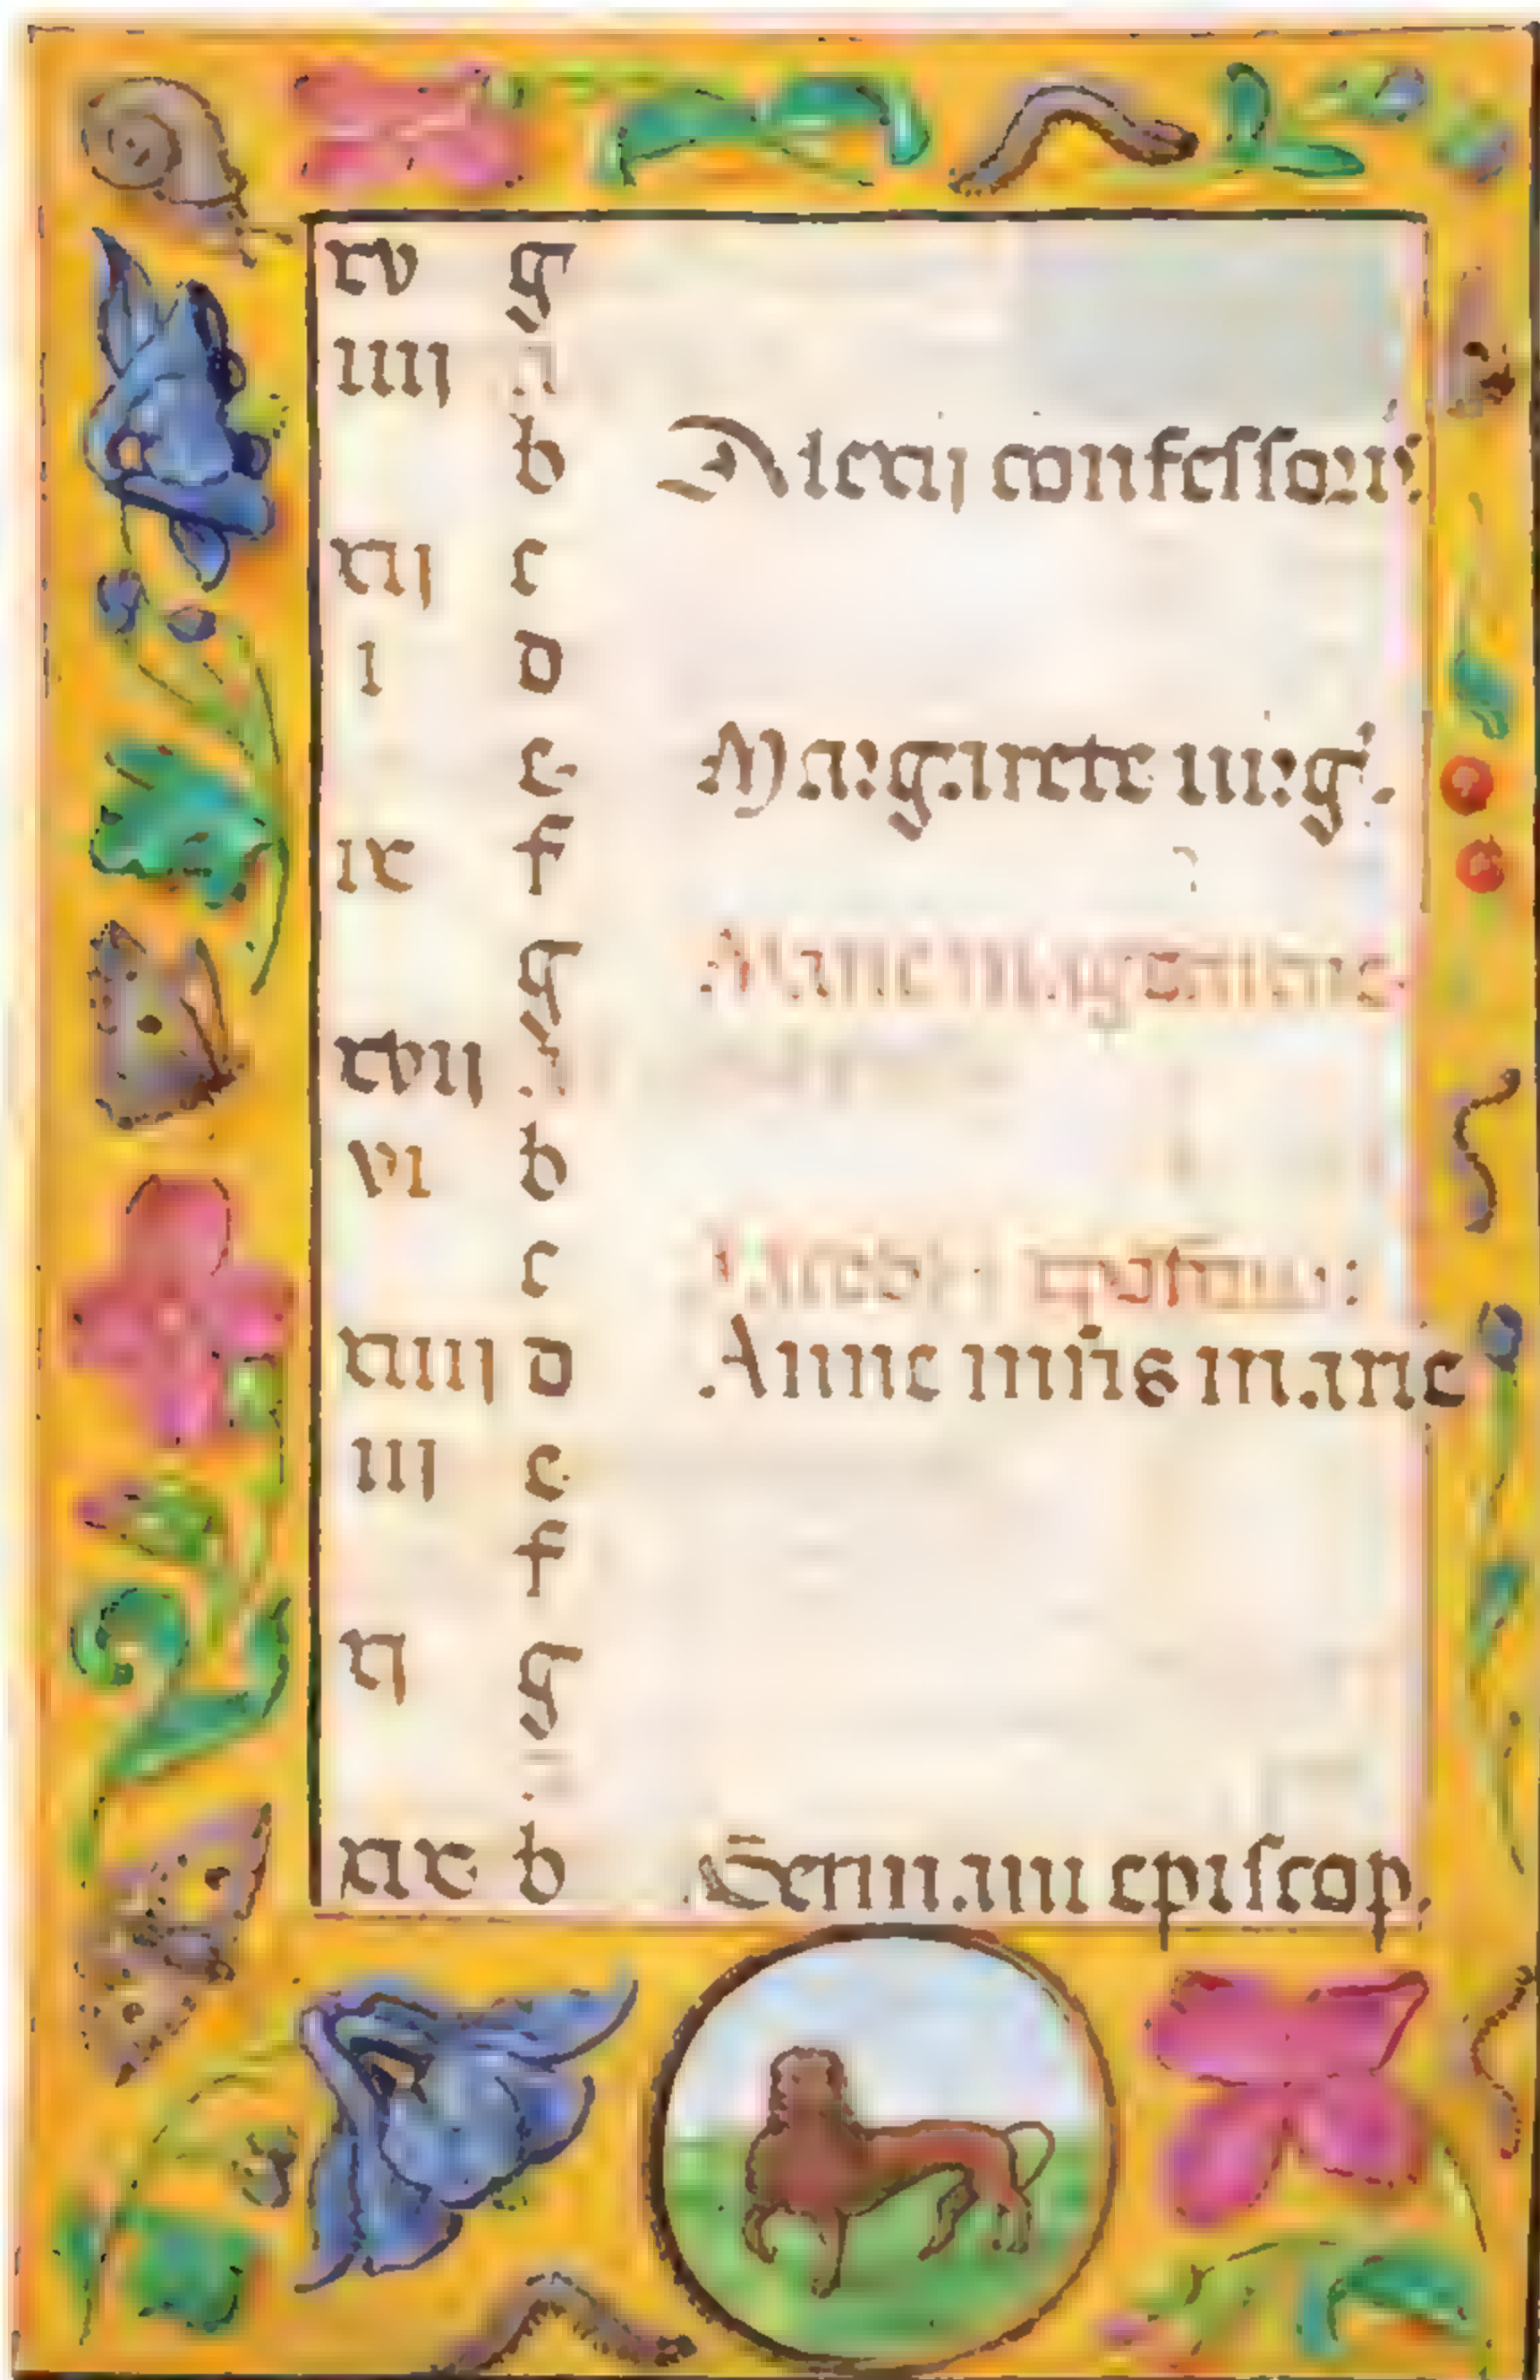 xv g
iiij a
b Alexij confessoris.
xij c
i d
e Margarete uirg'.
ix f
g Marie magdalene
xvij
vi b
c Jacobi apostoli
xiiij d Anne mr̃is marie
iij e
f
xj g
xix b Germani episcop.